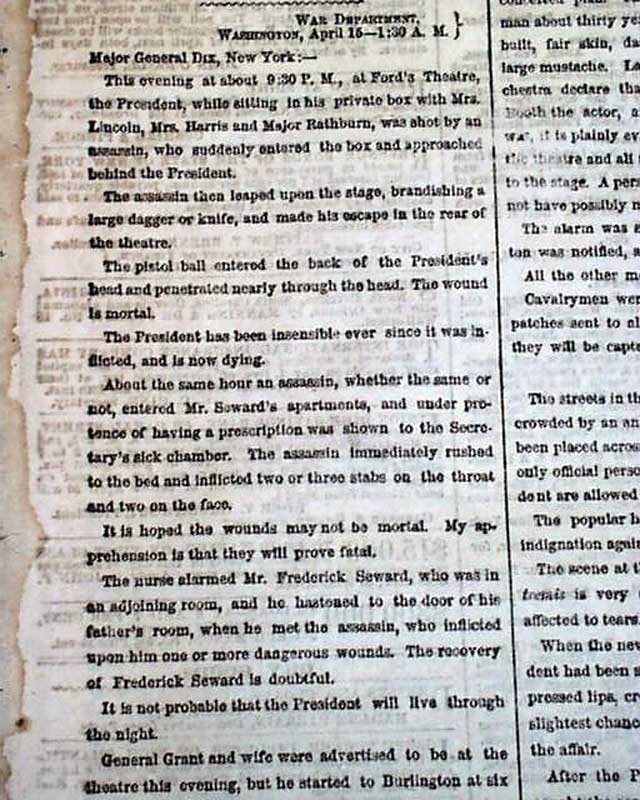 War Department,
Washington, April 15—1:30 A. M. }
Major General Dix, New York:—
This evening at about 9:30 P. M., at Ford's Theatre,
the President, while sitting in his private box with Mrs.
Lincoln, Mrs. Harris and Major Rathburn, was shot by an
assassin, who suddenly entered the box and approached
behind the President.
The assassin then leaped upon the stage, brandishing a
large dagger or knife, and made his escape in the rear of
the theatre.
The pistol ball entered the back of the President's
head and penetrated nearly through the head. The wound
is mortal.
The President has been insensible ever since it was in-
flicted, and is now dying.
About the same hour an assassin, whether the same or
not, entered Mr. Seward's apartments, and under pre-
tence of having a prescription was shown to the Secre-
tary's sick chamber. The assassin immediately rushed
to the bed and inflicted two or three stabs on the throat
and two on the face.
It is hoped the wounds may not be mortal. My ap-
prehension is that they will prove fatal.
The nurse alarmed Mr. Frederick Seward, who was in
an adjoining room, and he hastened to the door of his
father's room, when he met the assassin, who inflicted
upon him one or more dangerous wounds. The recovery
of Frederick Seward is doubtful.
It is not probable that the President will live through
the night.
General Grant and wife were advertised to be at the
theatre this evening, but he started to Burlington at six
man about thirty ye
built, fair skin, da
large mustache.
chestra declare tha
Booth the actor, a
wa, it is plainly ev
the theatre and all
to the stage. A per
not have possibly
The alarm was
ton was notified, a
All the other m
Cavalrymen wer
patches sent to al
they will be capt
The streets in th
crowded by an an
been placed acros
only official perso
dent are allowed
The popular h
indignation again
The scene at t
is very
affected to tears.
When the new
dent had been s
pressed lips, cr
slightest chanc
the affair.
After the P